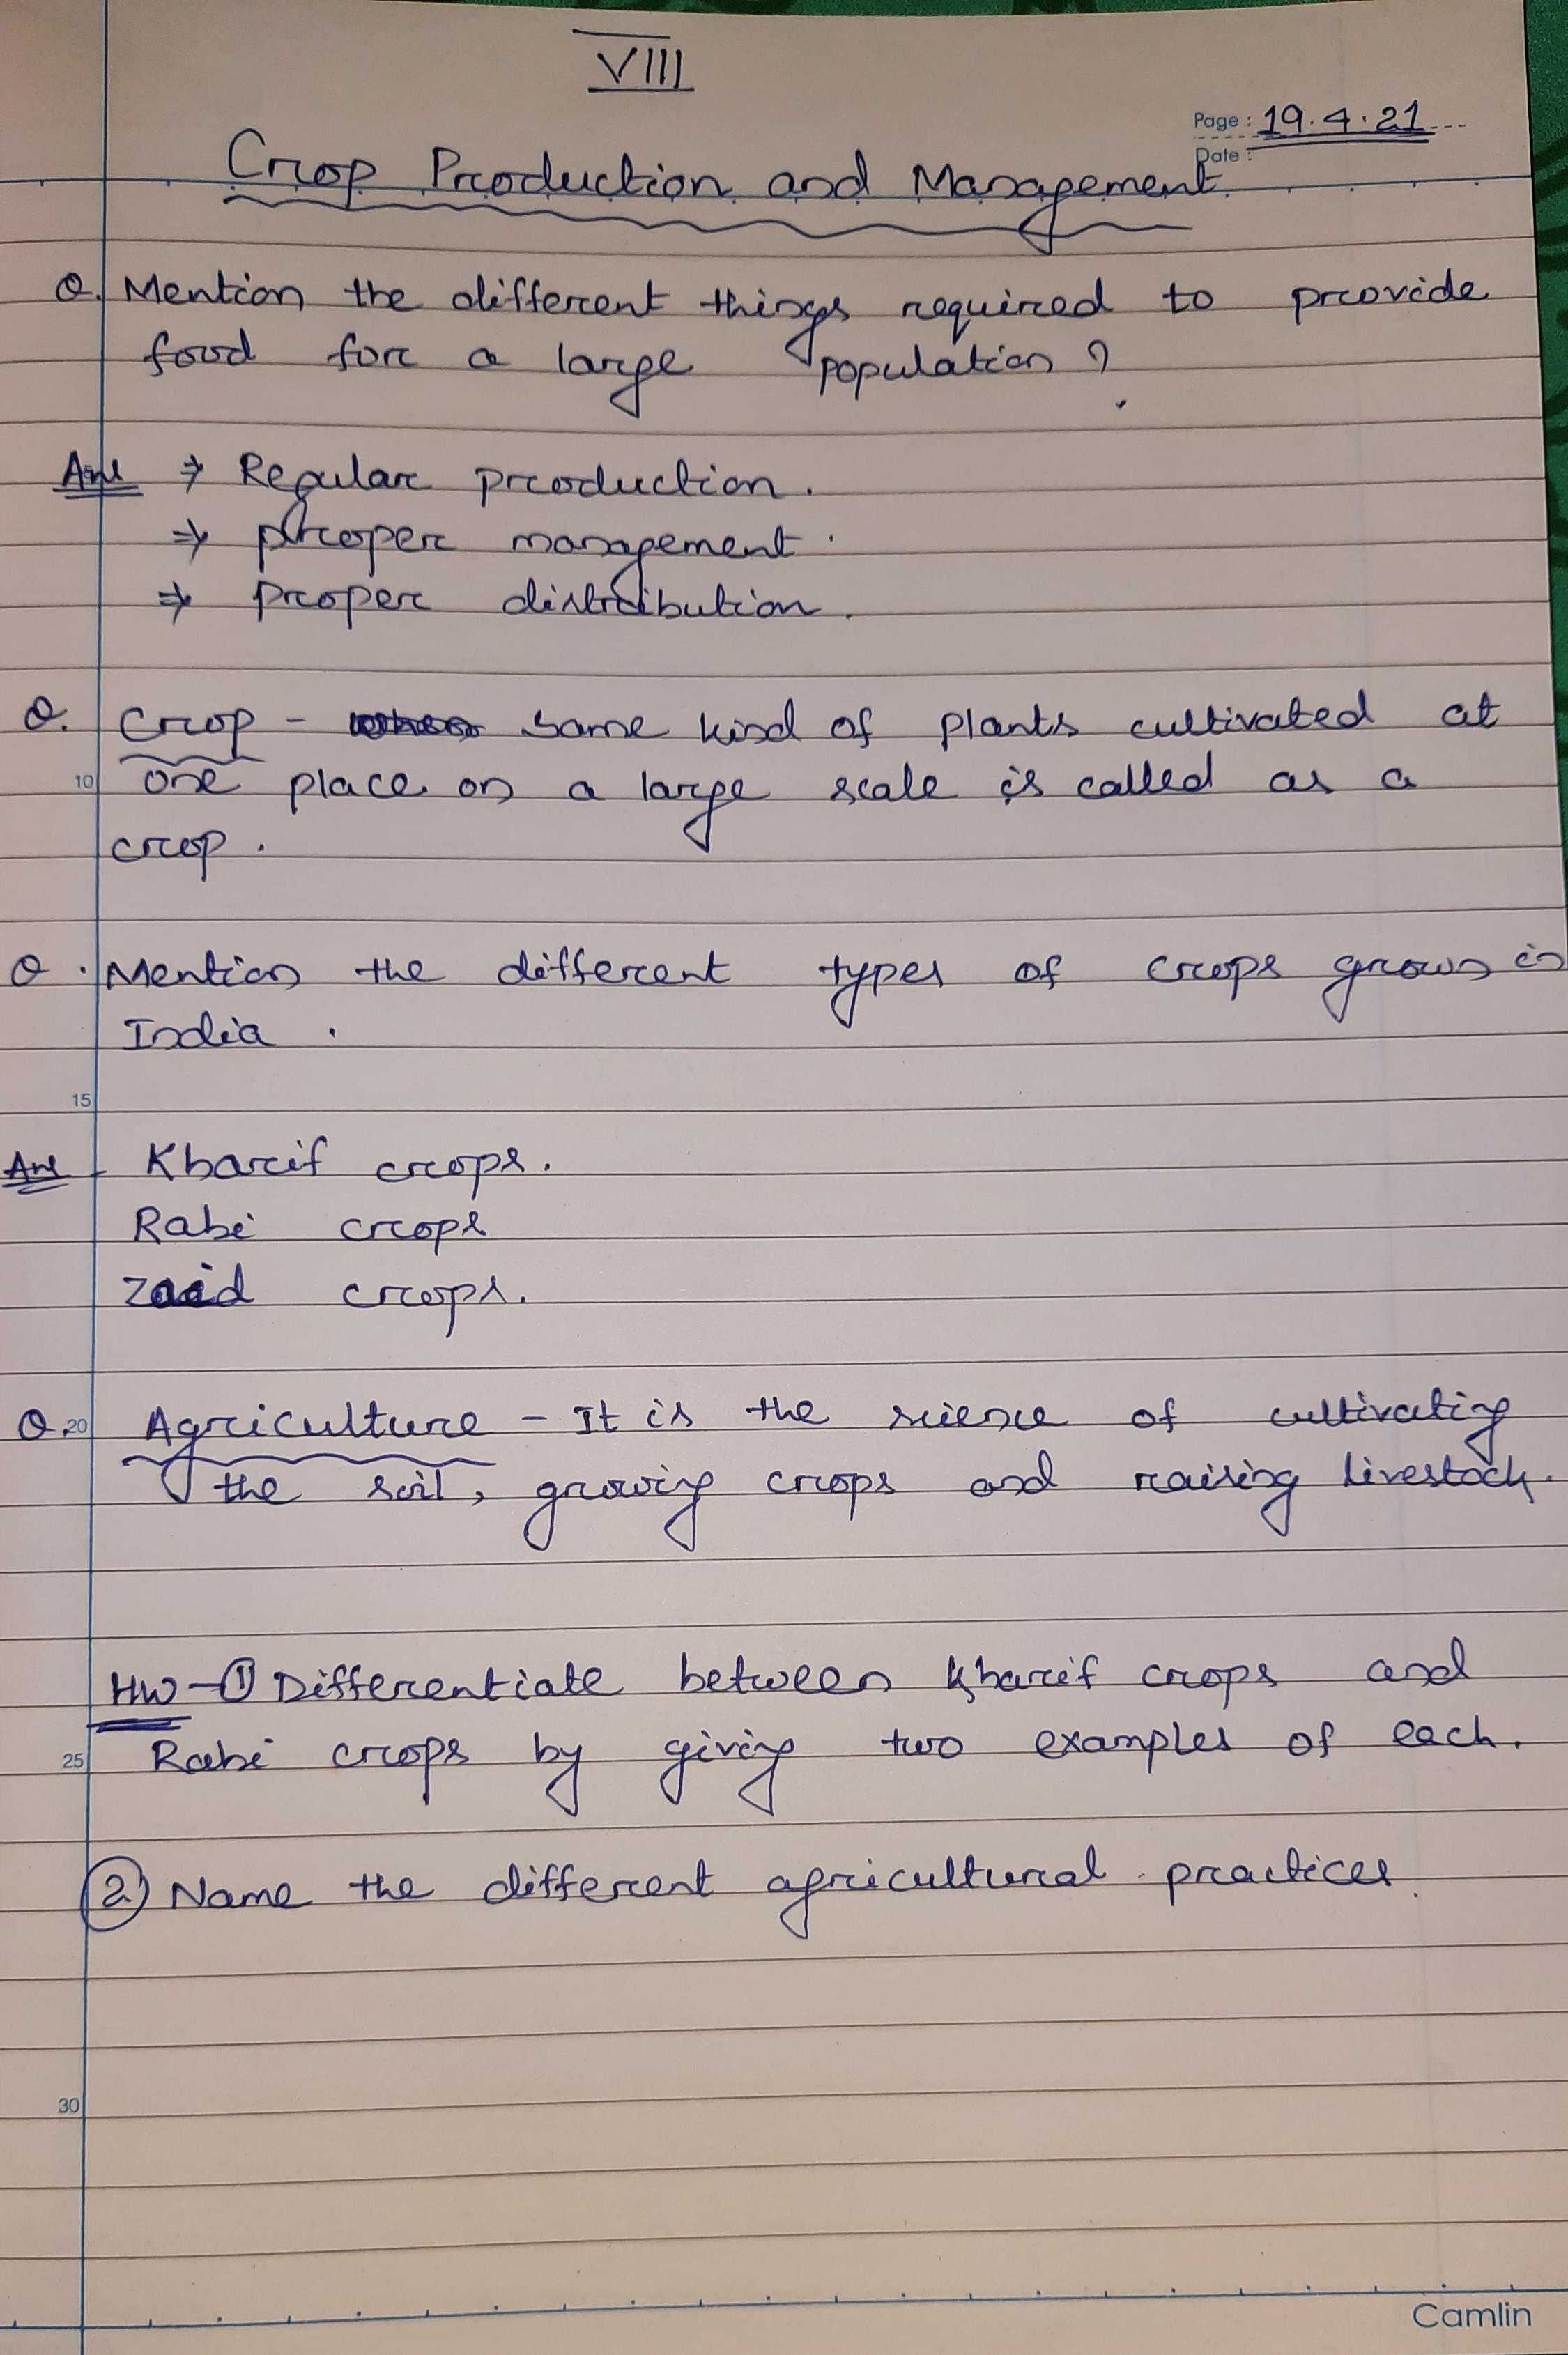 VIII
Page : 19.4.21
Date :
Crop Production and Management
Q. Mention the different things required to provide
food for a large population ?
Ans ⇒ Regular production.
⇒ proper management.
⇒ proper distribution.
Q. Crop - same kind of plants cultivated at
10 one place on a large scale is called as a
crop.
Q. Mention the different types of crops grown in
India.
15
Ans - Kharif crops.
Rabi crops
Zaid crops.
Q. 20 Agriculture - It is the science of cultivating
the soil, growing crops and raising livestock.
HW - ① Differentiate between Kharif crops and
25 Rabi crops by giving two examples of each.
② Name the different agricultural practices.
30
Camlin